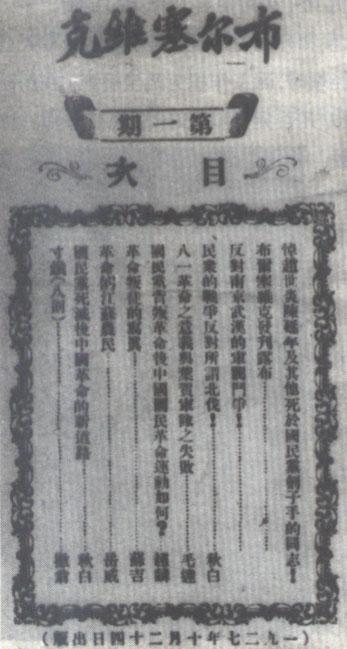 布尔塞維克
第一期
目次
悼趙世炎陳延年及其他死於國民黨劊子手的同志！
布爾塞維克發刊露布
反對南京武漢的軍閥鬥爭！
民衆的戰爭反對所謂北伐！ 秋白
八一革命之意義與葉賀軍隊之失敗 毛達
國民黨背叛革命後中國國民革命運動如何？ 超麟
革命叛徒的
革命的江蘇農民 岳威
國民黨死滅後中國革命的新道路 秋白
寸鐵（八節） 撒翁
（一九二七年十月二十四日出版）